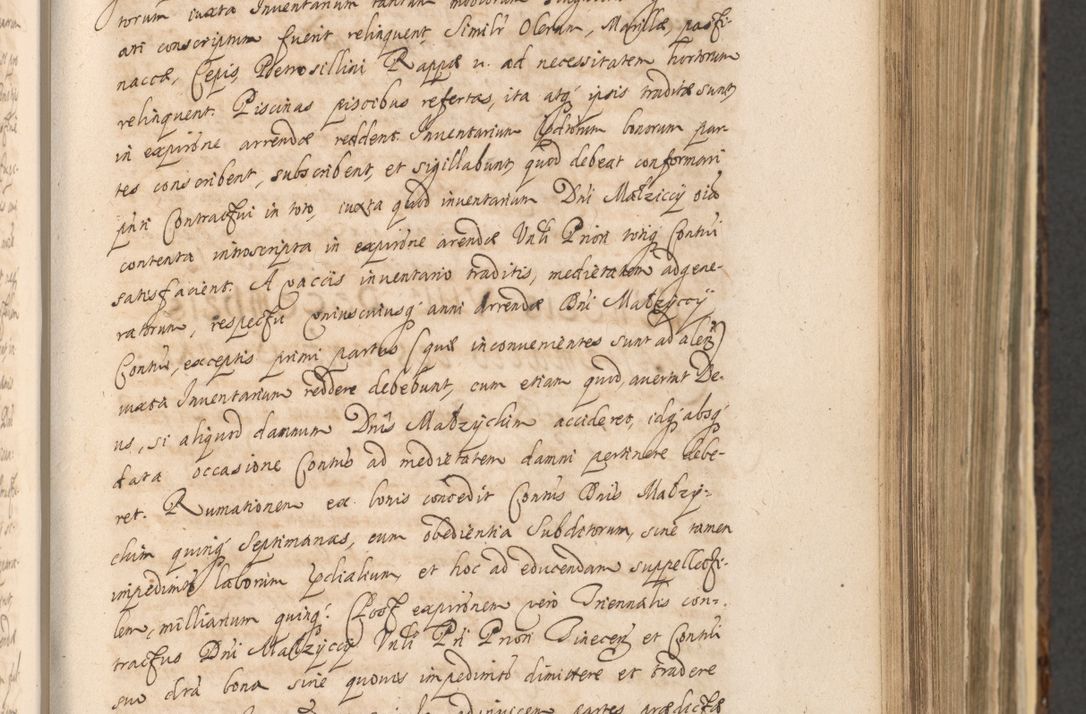 torum iuxta Inventarium tantum modiorum
ati conscriptum fuerit relinquent, Similr Olerum, Marillæ, pasti-
naccæ, Cepis, Petrosillini Rappæ n. ad necessitatem hortorum
relinquent. Piscinas piscibus refertas, ita atq ipsis traditæ sunt,
in expirõne arrendæ reddent. Inventarium bonorum par-
tes conscribent, subscribent, et sigillabunt, quod debeat conformari
pñti Contractui in toto, iuxta quod inventarium Dñi Małziccy oiã
contenta introscripta in expirõne arendæ Vnli Priori totiq Contui
satisfacient. A vaccis inventario traditis, medietatem adgene-
ratorum, respectu cuiuscuiusq anni Arrendæ Dñi Małzyccÿ
Contui, exceptis primi partus (quæ inconvenientes sunt ad alen)
iuxta Inventarium reddere debebunt, cum etiam quod, avertat De-
us, si aliquod damnum Dnis Małzyckim accideret, idq absq
data occasione Contus ad medietatem damni pertinere debe-
ret. Rumationem ex bonis concedit Contus Dnis Małzy-
ckim quinq Septimanas, cum obedientia Subditorum, sine tamen
impedimto laborum pclialium, et hoc ad educendam suppellecti-
lem, milliarium quinq. Post expirõnem vero Triennalis con-
tractus Dñi Małzyccÿ Vnli Pri Priori et Contui
suo dcta bona sine quovis impedimto dimittere et tradere
partes prædictæ